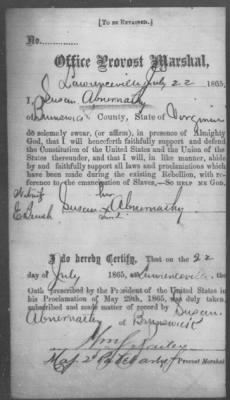 [TO BE RETAINED.]
No.
Office Provost Marshal,
Lawrenceville July 22 1865
I, Susan Abernathy
of Brunswick County, State of Virginia
do solemnly swear, (or affirm), in presence of Almighty
God, that I will henceforth faithfully support and defend
the Constitution of the United States and the Union of the
States thereunder, and that I will, in like manner, abide
by and faithfully support all laws and proclamations which
have been made during the existing Rebellion, with ref-
erence to the emancipation of Slaves,—SO HELP ME GOD.
her
Susan x Abernathy
mark
I do hereby Certify, That on the 22
day of July 1865, at Lawrenceville, the
Oath prescribed by the President of the United States in
his Proclamation of May 29th, 1865, was duly taken,
subscribed and made matter of record by Susan
Abernathy of Brunswick
Provost Marshal